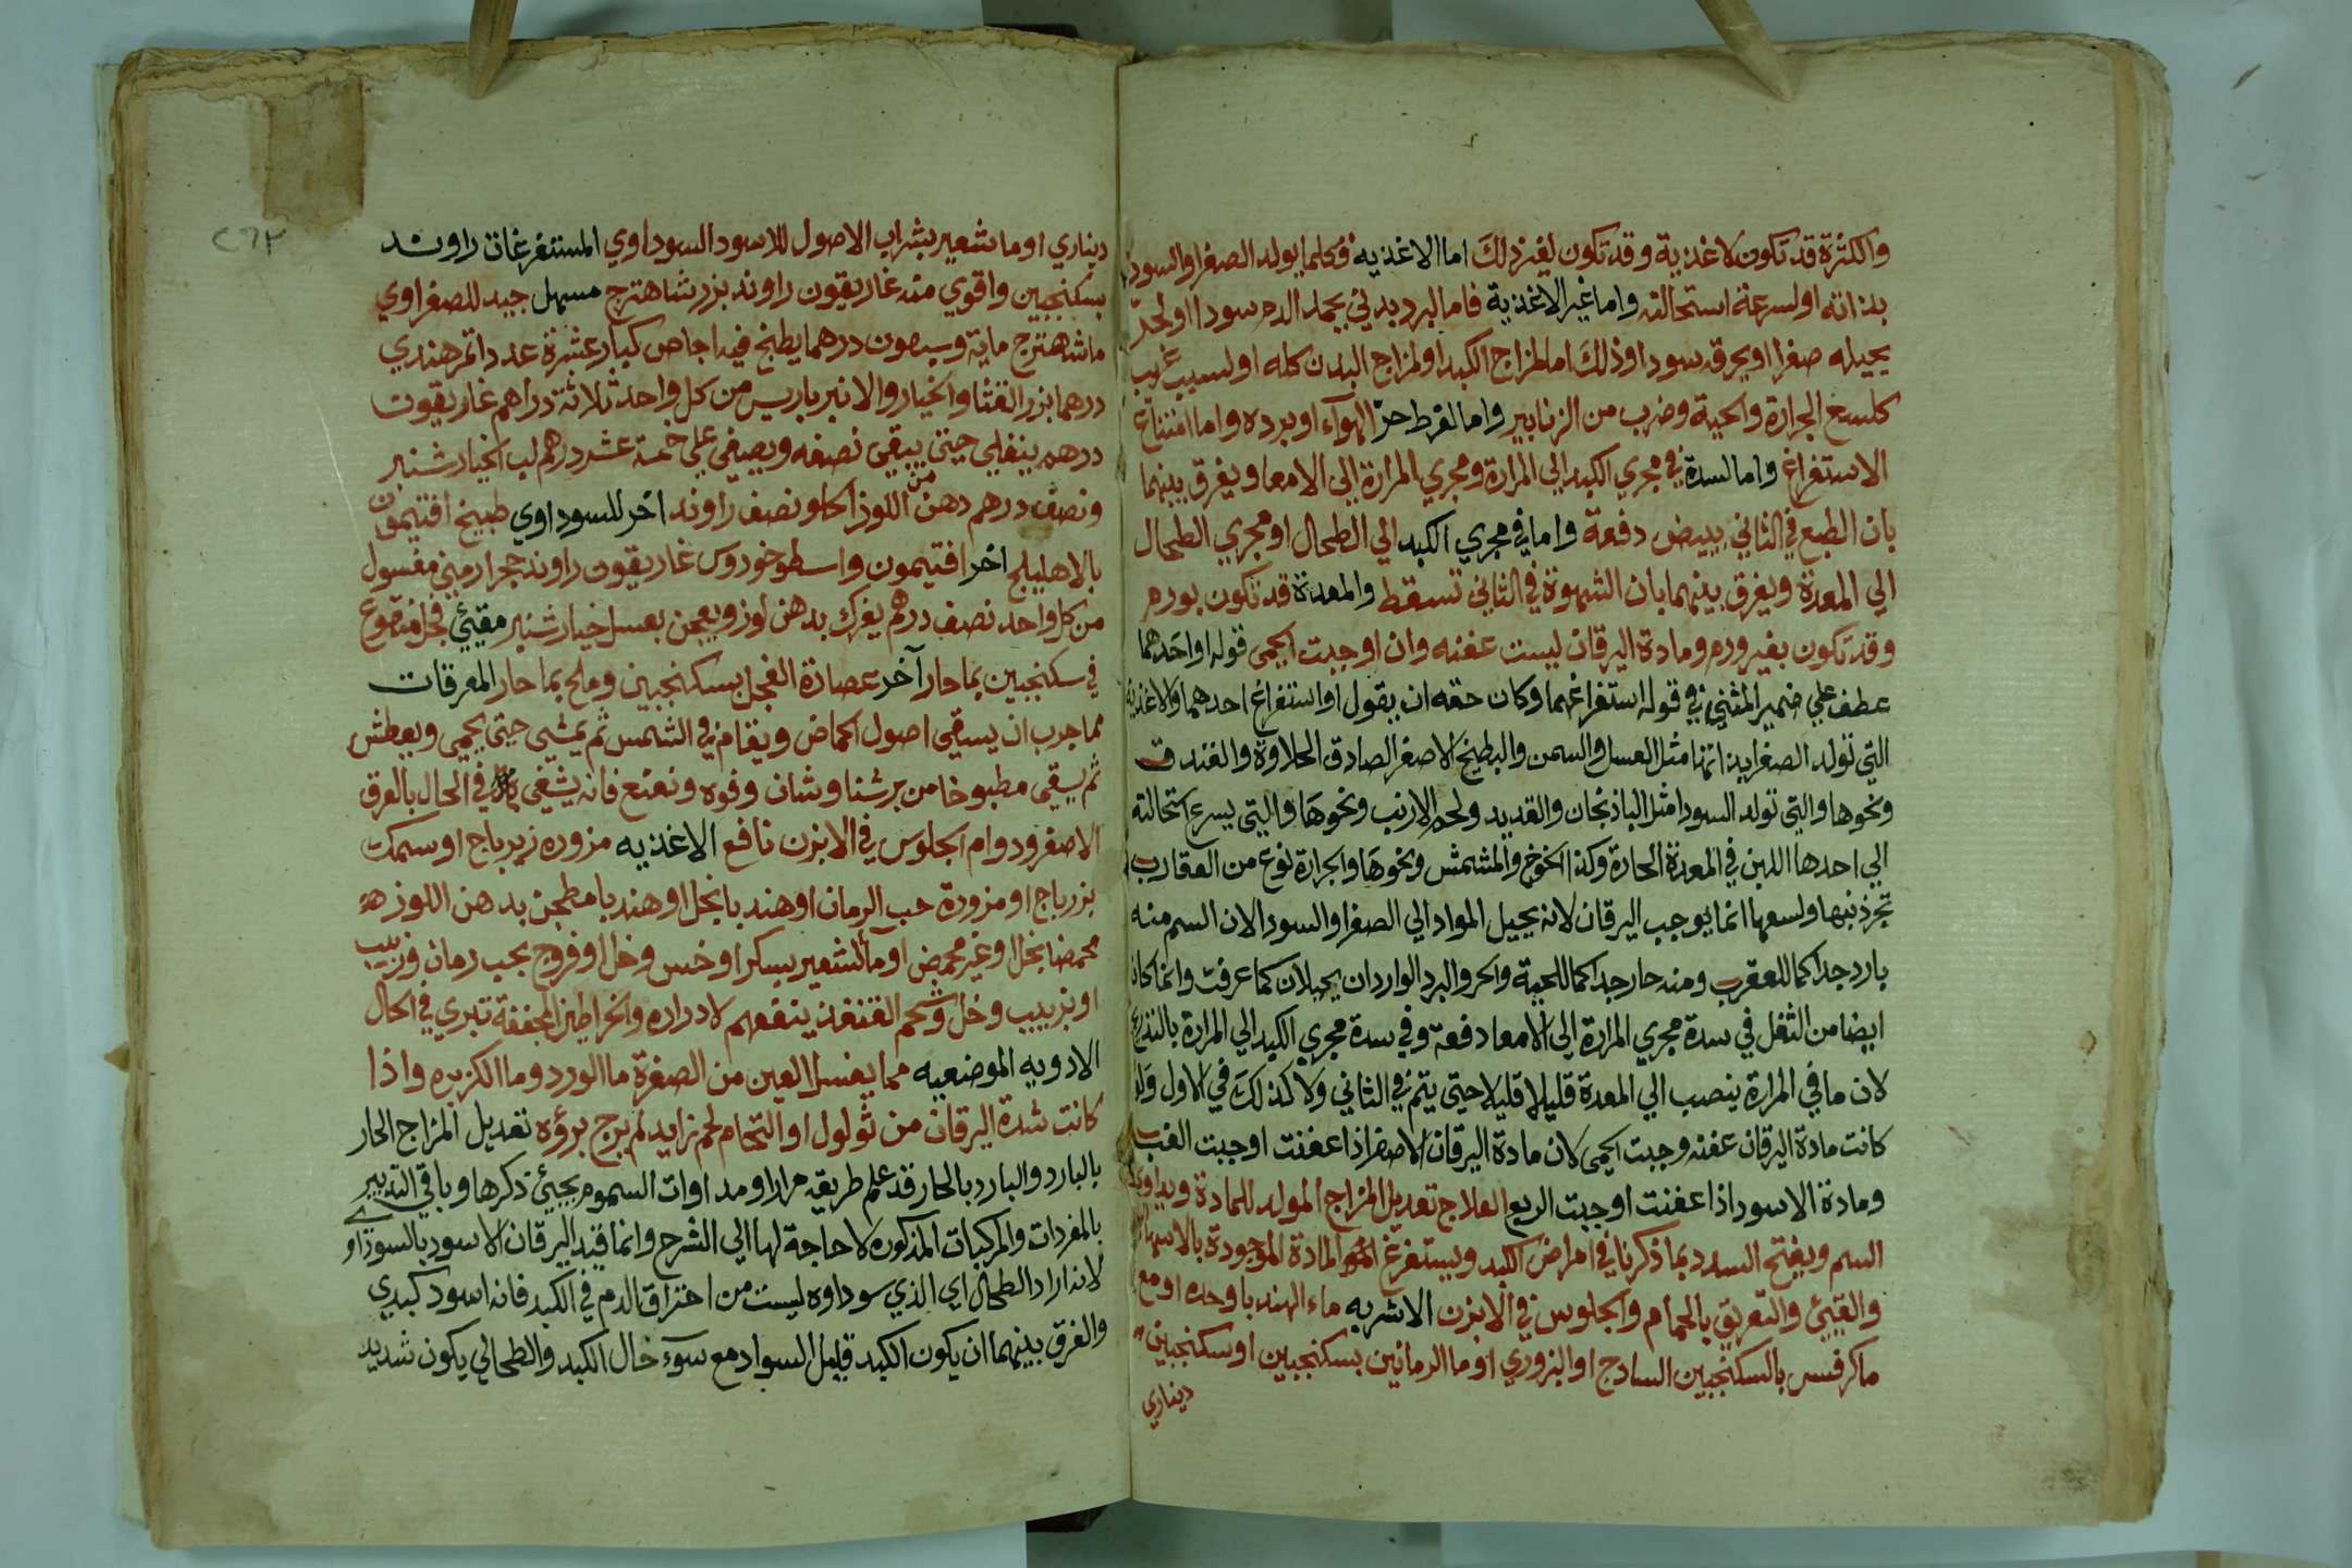 والكثرة قد تكون لاغذية وقد تكون لغير ذلك اما الاغذيه فكلما يولد الصفرا والسودا
بذاته او لسرعة استحالته واما غير الاغذية فاما لبرد بدني يجمد الدم سودا او لحر
يحيله صفرا او يحرقه سودا وذلك اما لمزاج الكبد او لمزاج البدن كله او لسبب غريب
كلسع الجرارة والحية وضرب من الزنابير واما لفرط حر الهوآء او برده واما امتناع
الاستفراغ واما لسدة في مجري الكبد الي المرارة ومجري المرارة الي الامعا ويفرق بينهما
بان الطبع في الثاني يبيض دفعة واما في مجري الكبد الي الطحال او مجري الطحال
الي المعدة ويفرق بينهما بان الشهوة في الثاني تسقط والمعدة قد تكون بورم
وقد تكون بغير ورم ومادة اليرقان ليست عفنه وان اوجبت الحمي قوله او احدهما
عطف علي ضمير المثني في قوله استفراغهما وكان حقه ان يقول او استفراغ احدهما والاغذية
التي تولد الصفرا بذاتها مثل العسل والسمن والبطيخ الاصفر الصادق الحلاوة والفندق
ونحوها والتي تولد السودا مثل الباذنجان والقديد ولحم الارنب ونحوها والتي يسرع استحالته
الي احدها اللبن في المعدة الحارة وكذا الخوخ والمشمش ونحوها والجرارة نوع من العقارب
تجر ذنبها ولسعها انما يوجب اليرقان لانه يحيل المواد الي الصفرا والسودا لان السم منه
بارد جدا كما للعقرب ومنه حار جدا كما للحية والحر والبرد الواردان يحيلان كما عرفت وانما كان
ابيضا من الثفل في سدة مجري المرارة الي الامعا دفعة وفي سدة مجري الكبد الي المرارة بالتدريج
لان ما في المرارة ينصب الي المعدة قليلا قليلا حتي يتم في الثاني ولا كذلك في الاول ولو
كانت مادة اليرقان عفنه وجبت الحمي لان مادة اليرقان الاصفر اذا عفنت اوجبت الغب
ومادة الاسود اذا عفنت اوجبت الربع العلاج تعديل المزاج المولد للمادة ويداوي
السم ويفتح السدد بما ذكرنا في امراض الكبد ويستفرغ المادة الموجودة بالاسهال
والقيئ والتعريق بالحمام والجلوس في الابزن الاشربه ماء الهندبا وحده او مع
ماكرفس بالسكنجبين الساذج او البزوري او ما الرمانين بسكنجبين او سكنجبين
ديناري
٢٦٢
ديناري او ما شعير بشراب الاصول للاسود السوداوي المستفرغات راوند
بسكنجبين واقوي منه غاريقون راوند بزر شاهترج مسهل جيد للصفراوي
ما شاهترج ماية وسبعون درهما يطبخ فيه اجاص كبار عشرة عددا تمر هندي
درهما بزر القثا والخيار والانبرباريس من كل واحد ثلاثة دراهم غاريقون
درهم ينغلي حتي يبقي نصفه ويصفي علي خمسة عشر درهم لب الخيار شنبر
ونصف درهم من دهن اللوز الحلو ونصف راوند اخر للسوداوي طبيخ افتيمون
بالاهليلج اخر افتيمون واسطوخودوس غاريقون راوند حجر ارمني مغسول
من كل واحد نصف درهم يفرك بدهن لوز ويعجن بعسل خيار شنبر مقيئ فجل منقوع
في سكنجبين بما حار آخر عصارة الفجل بسكنجبين وملح بما حار المعرقات
مما جرب ان يسقي اصول الحماض ويقام في الشمس ثم يمشي حتي يحمي ويعطش
ثم يسقي مطبوخا من برشناوشان وفوه ونعنع فانه يشفي في الحال بالعرق
الاصفر ودوام الجلوس في الابزن نافع الاغذيه مزوره زيرباج او سمك
بزرباج او مزورة حب الرمان او هندبا بخل او هندبا مطجن بدهن اللوز
محمضا بخل او غير محمض او مآ الشعير بسكر او خس وخل او فروج بحب رمان وزبيب
او بزبيب وخل وشحم القنفذ ينفعهم لادراره والخراطين المجففة تبري في الحال
الادويه الموضعيه مما يغسل العين من الصفرة ما الورد وما الكزبره واذا
كانت شدة اليرقان من ثولول او التحام لحم زايد لم يرج بروه تعديل المزاج الحار
بالبارد والبارد بالحار قد علم طريقه مرارا ومداوات السموم يجيئ ذكرها وباقي التدبير
بالمفردات والمركبات المذكوره لا حاجة لها الي الشرح وانما قيد اليرقان الاسود بالسوداوي
لانه اراد الطحالي اي الذي سوداوه ليست من احتراق الدم في الكبد فانه اسود كبدي
والفرق بينهما ان يكون الكبد قليل السواد مع سوء حال الكبد والطحالي يكون شديد